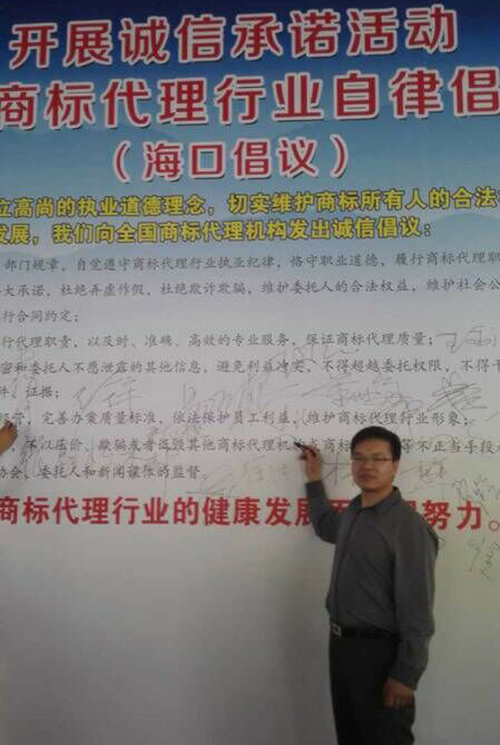 开展诚信承诺活动
商标代理行业自律倡
（海口倡议）
立高尚的执业道德理念，切实维护商标所有人的合法
发展，我们向全国商标代理机构发出诚信倡议：
部门规章，自觉遵守商标代理行业执业纪律，恪守职业道德，履行商标代
大承诺，杜绝弄虚作假，杜绝欺诈欺骗，维护委托人的合法权益，维护社会公
行合同约定；
行代理职责，以及时、准确、高效的专业服务，保证商标代理质量；
密和委托人不愿泄露的其他信息，避免利益冲突，不得超越委托权限，不得干
件、证据；
经营，完善办案质量标准，依法保护员工利益，维护商标代理行业形象；
不以压价、欺骗或者诋毁其他商标代理机构或商标 等不正当手段
协会、委托人和新闻媒体的监督。
商标代理行业的健康发展而 努力。